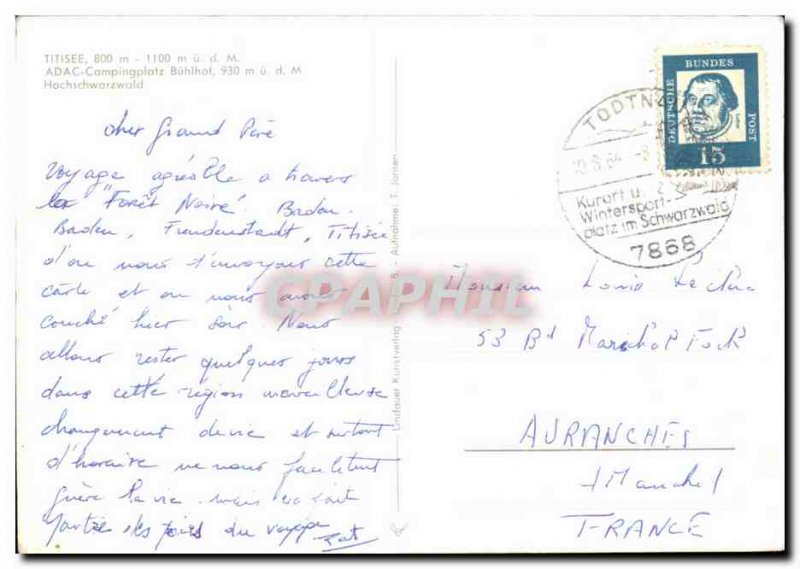 TITISEE, 800 m - 1100 m ü. d. M.
ADAC-Campingplatz Bühlhof, 930 m ü. d. M
Hochschwarzwald
cher Grand Père
Voyage agréable a travers
la "Forêt Noire". Baden.
Baden, Freudenstadt, Titisée
d'ou nous t'envoyons cette
carte et ou nous avons
couché hier soir. Nous
allons rester quelques jours
dans cette région merveilleuse
changement de vie et surtout
d'horaire ne nous facilitent
guère la vie mais ça fait
partie des joies du voyage
Lindauer Kunstverlag
- Aufnahme: T. Jansen
DEUTSCHE BUNDES POST
15
TODTN
10.8.64 -8
Kurort u.
Wintersport-
platz im Schwarzwald
7868
Monsieur Louis
53 Bd Marechal Foch
AVRANCHES
(Manche)
FRANCE
CPAPHIL